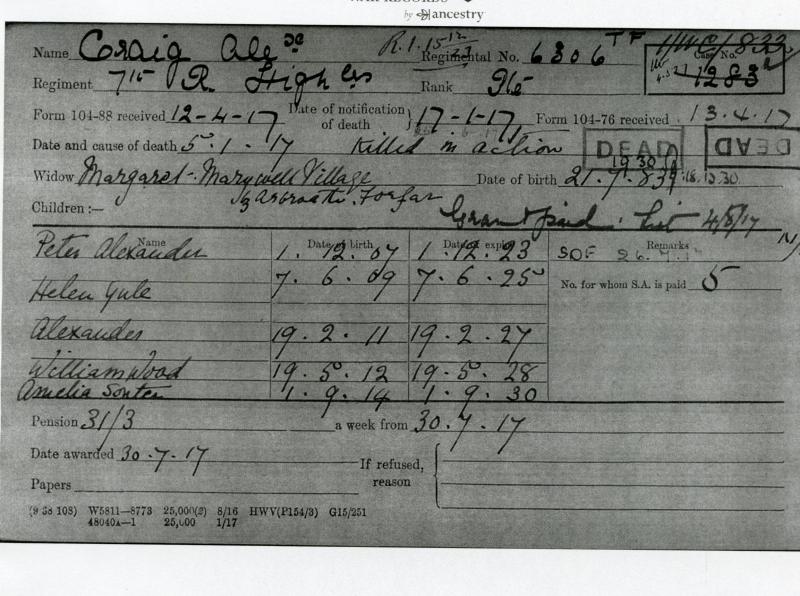 WAR RECORDS
by ancestry
Name Craig Alexr R.1.15 12/23 Regimental No. 6306 TF
HWC/1832 Case No. 1283
Regiment 7th R. Highlrs Rank Pte
Form 104-88 received 12-4-17 Date of notification of death 17-1-17 Form 104-76 received 13.4.17
Date and cause of death 5.1.17 Killed in action DEAD DEAD
Widow Margaret - Marywell Village Date of birth 21.7.83 18.12.30
by Arbroath. Forfar
Children :— Grant paid. List 4/8/17
Name Date of birth Date of expiry Remarks
Peter Alexander 1.12.07 1.12.23 SOF 26.7.17
Helen Yule 7.6.09 7.6.25 No. for whom S.A. is paid 5
Alexander 19.2.11 19.2.27
William Wood 19.5.12 19.5.28
Amelia Souter 1.9.14 1.9.30
Pension 31/3 a week from 30.7.17
Date awarded 30.7.17 If refused, reason
Papers
(9 38 108) W5811—8773 25,000(2) 8/16 HWV(P154/3) G15/251
48040A—1 25,000 1/17